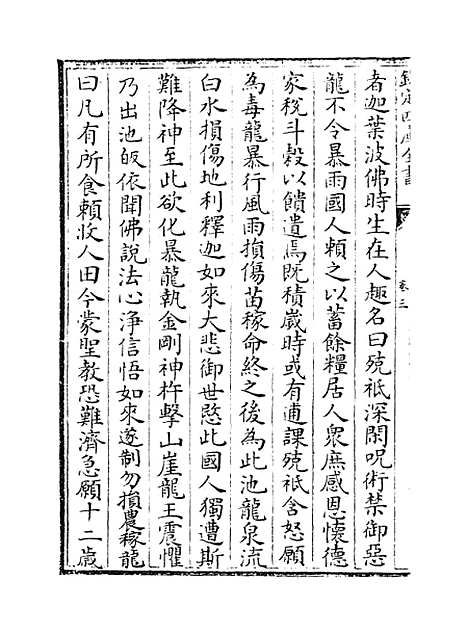 欽定四庫全書
卷三
者迦葉波佛時生在人趣名曰殑祇深閑呪術禁御惡
龍不令暴雨國人賴之以蓄餘糧居人衆庶感恩懷德
家稅斗穀以饋遺焉既積歲時或有逋課殑祇含怒願
為毒龍暴行風雨損傷苗稼命終之後為此池龍泉流
白水損傷地利釋迦如來大悲御世愍此國人獨遭斯
難降神至此欲化暴龍執金剛神杵擊山崖龍王震懼
乃出池皈依聞佛說法心淨信悟如來遂制勿損農稼龍
曰凡有所食賴收人田今蒙聖教恐難濟急願十二歲